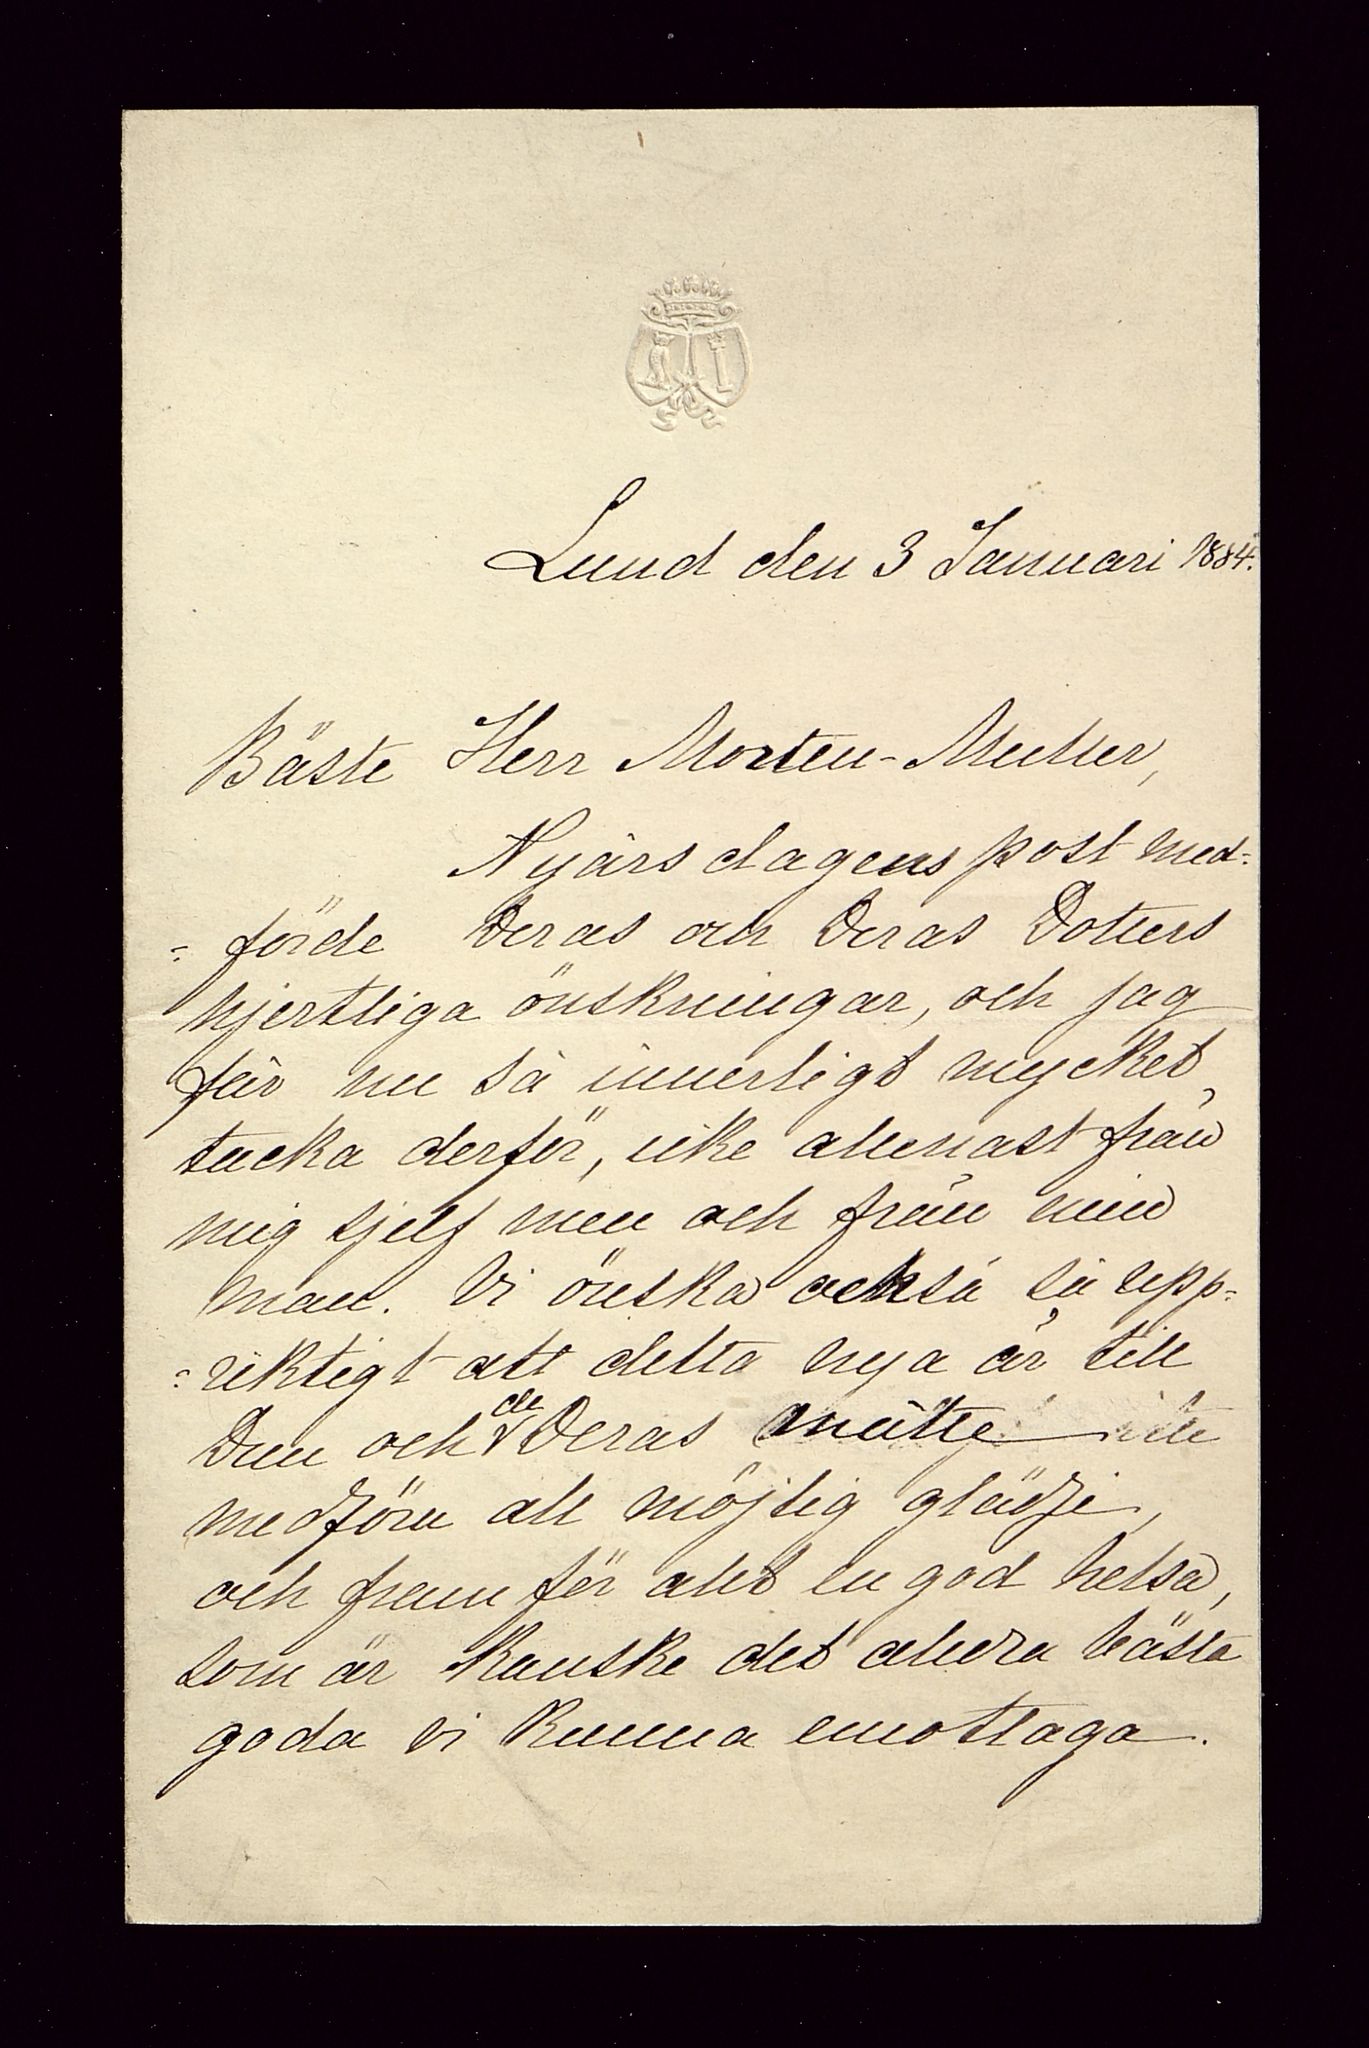 Lund den 3 Januari 1884.
Bäste Herr Morten-Müller,
Nyårsdagens post med-
-förde Deras och Deras Dotters
hjertliga önskningar, och jag
får nu så innerligt mycket
tacka derför, icke allenast från
mig sjelf men och från min
man. Vi önska också så upp-
-riktigt att detta nya år till
Dem och de Deras måtte
medföra all möjlig glädje,
och framför allt en god helsa,
som är kanske det aldra bästa
goda vi kunna emottaga.